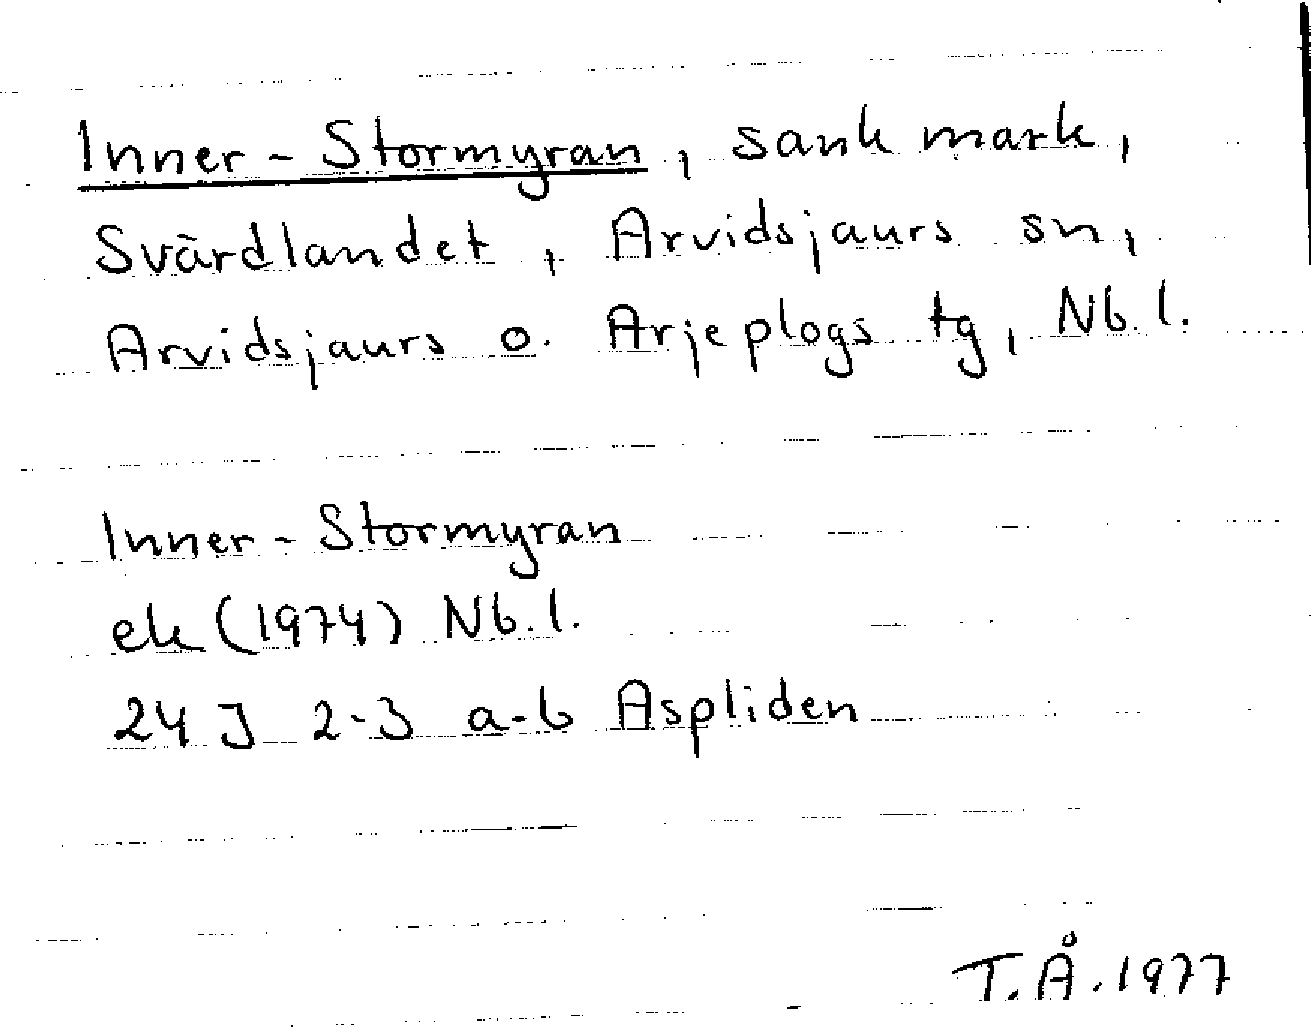 Inner-Stormyran, sank mark,
Svärdlandet, Arvidsjaurs sn,
Arvidsjaurs o. Arjeplogs tg, Nb.l.
Inner-Stormyran
ek (1974) Nb.l.
24 J 2-3 a-b Aspliden
T.Å.1977